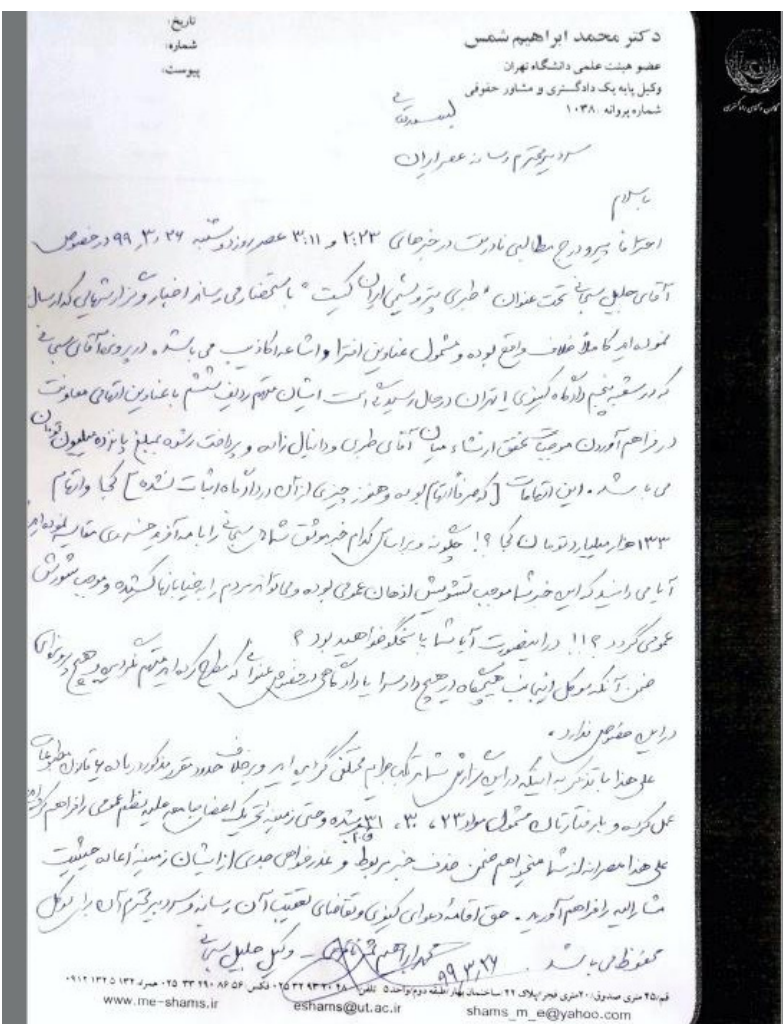 دکتر محمد ابراهیم شمس
عضو هیئت علمی دانشگاه تهران
وکیل پایه یک دادگستری و مشاور حقوقی
شماره پروانه: ۱۰۳۸۰
تاریخ:
شماره:
پیوست:
سردبیر محترم رسانه عصر ایران
با سلام
احتراما پیرو درج مطالبی نادرست در خبرهای ۲:۲۳ و ۳:۱۱ عصر روز دوشنبه ۹۹,۳,۲۶ در خصوص
آقای جلیل سبحانی تحت عنوان "طبری پتروشیمی ایران کیست" باستحضار می رساند اخبار و گزارشهایی که ارسال
نموده اید کاملاً خلاف واقع بوده و مشمول عناوین افترا و اشاعه اکاذیب می باشد. در پرونده آقای سبحانی
که در شعبه پنجم دادگاه کیفری ۱ تهران در حال رسیدگی است ایشان متهم ردیف ششم با عناوین اتهامی معاونت
در فراهم آوردن موجبات تحقق ارتشاء میان آقای طبری و دانیال زاده و پرداخت رشوه بمبلغ پانزده میلیون تومان
می باشد. این اتهامات [که صرفاً اتهام بوده و هنوز چیزی از آن در دادگاه اثبات نشده] کجا و اتهام
۱۳۳ هزار میلیارد تومان کجا؟! چگونه و بر اساس کدام خبر موثق شما سبحانی را با مه آفرید خسروی مقایسه نموده اید
آیا می دانید که این خبر شما موجب تشویش اذهان عمومی بوده و می تواند مردم را به خیابانها کشیده و موجب شورش
عمومی گردد؟!! در اینصورت آیا شما پاسخگو خواهید بود؟
ضمن آنکه موکل اینجانب هیچگاه در هیچ دادسرا یا دادگاهی در خصوص عنوانی که مطرح کرده اید متهم نگردیده و هیچ پرونده ای
در این خصوص ندارد.
علی هذا با تذکر به اینکه در این گزارش شما مرتکب جرایم مختلفی گردیده اید و برخلاف حدود مقرر مذکور در ماده ۶ قانون مطبوعات
عمل کرده و رفتارتان مشمول مواد ۲۳، ۳۰، ۳۱ شده و حتی زمینه تحریک اعضای جامعه علیه نظم عمومی را فراهم کرده
علی هذا مصرانه از شما میخواهم ضمن حذف خبر مربوط و عذرخواهی جدی از ایشان زمینه اعاده حیثیت
مشارالیه را فراهم آورید. حق اقامه دعوای کیفری و تقاضای تعقیب آن رسانه و سردبیر محترم آن برای موکل
محفوظ می باشد. محمد ابراهیم شمس - وکیل جلیل سبحانی
۹۹,۳,۲۶
www.me-shams.ir eshams@ut.ac.ir shams_m_e@yahoo.com